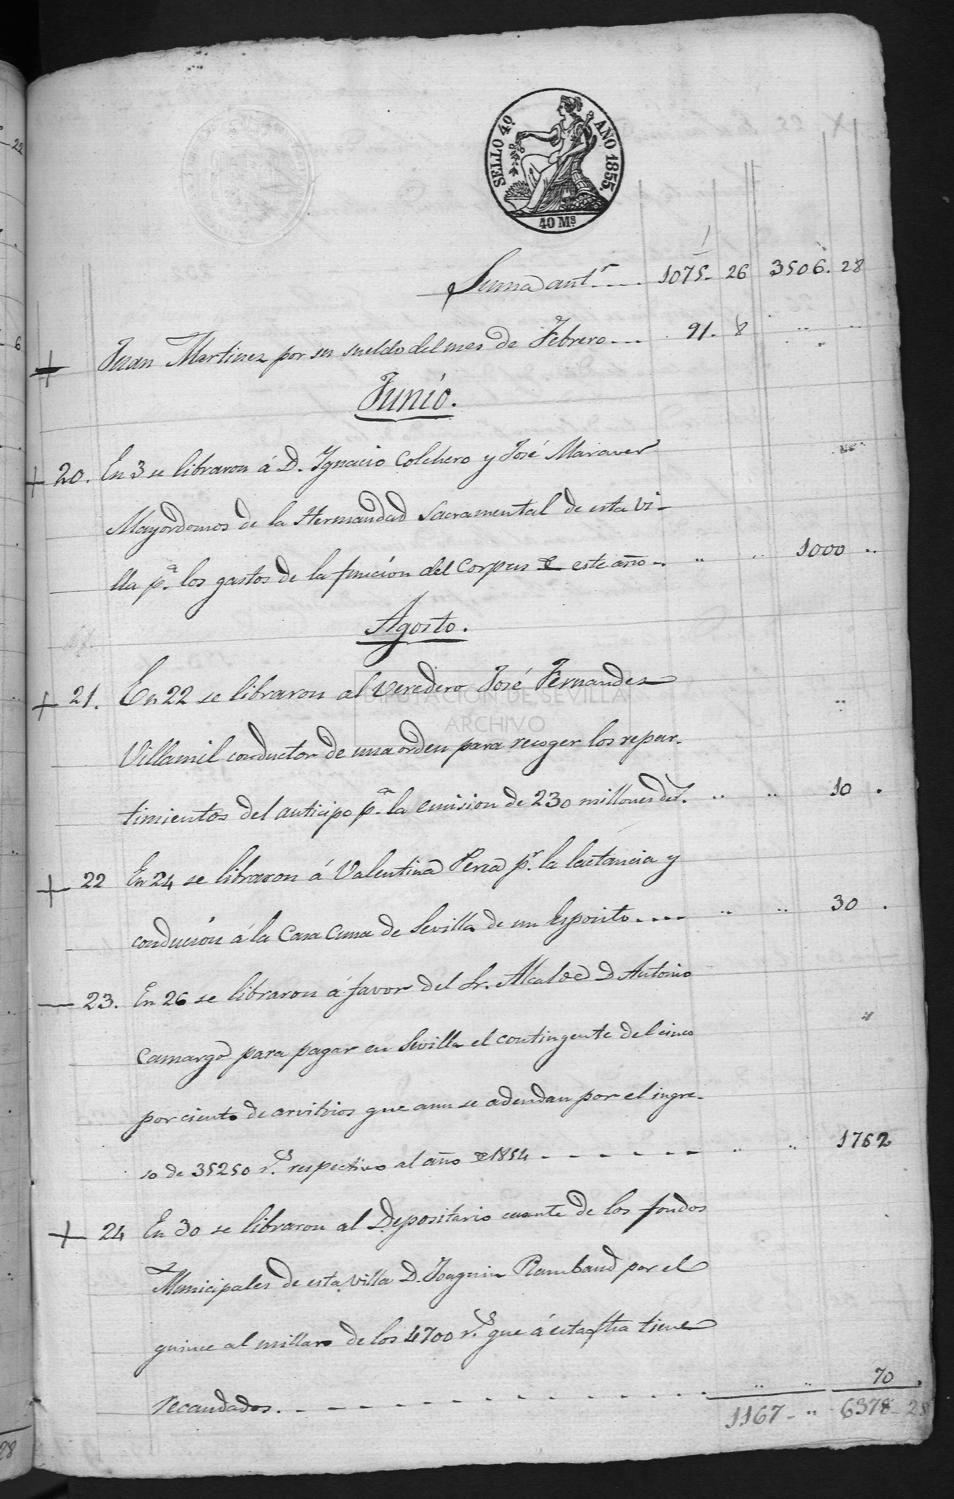 SELLO 4º AÑO 1855.
40 Ms
Suma antr. .... 1075. 26 3506. 28
Juan Martinez por su sueldo del mes de Febrero... 91. 8 .. ..
Junio.
+ 20. En 3 se libraron á D. Ygnacio Colchero y José Maraver
Mayordomos de la Hermandad Sacramental de esta Vi-
lla pa. los gastos de la funcion del Corpus de este año .. .. 1000 ..
Agosto.
+ 21. En 22 se libraron al Veredero José Fernandez
Villamil conductor de una orden para recoger los repar-
timientos del anticipo pa. la emision de 230 millones de rs. .. .. 10 .
+ 22 En 24 se libraron á Valentina Perea pr. la lactancia y
conducion á la Casa Cuna de Sevilla de un Esposito .... .. .. 30 .
— 23. En 26 se libraron á favor del Sr. Alcalde D Antonio
Camargo para pagar en Sevilla el contingente del cinco
por ciento de arvitrios que aun se adeudan por el ingre-
so de 35250 rs. respectivo al año de 1854 - - - - - - .. .. 1762
+ 24 En 30 se libraron al Depositario de los fondos
Municipales de esta Villa D. Joaquin Rambaud por el
quince al millar de los 4700 rs. que á esta fha tiene
recaudados. - - - - - - - - - - .. .. 70 .
1167 - .. 6378 - 28
DIPUTACIÓN DE SEVILLA
ARCHIVO
22
6
28